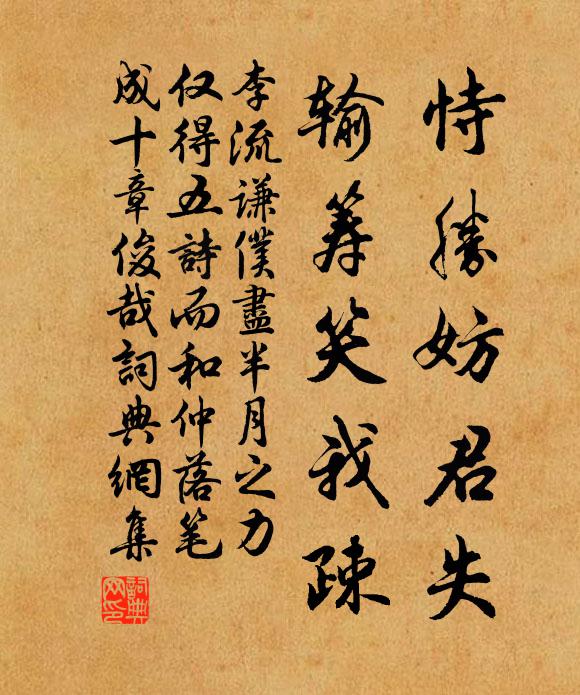 恃勝妨君失
输筹笑我疎
李流谦僕盡半月之力
仅得五詩而和仲落笔
成十章俊哉詞典網集
詞典网印